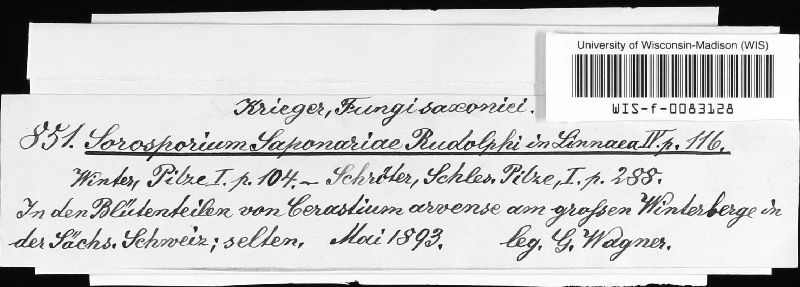 University of Wisconsin-Madison (WIS)
WIS-f-0083128
Krieger, Fungi saxonici.
851. Sorosporium Saponariae Rudolphi in Linnaea IV. p. 116.
Winter, Pilze I. p. 104. – Schröter, Schles. Pilze, I. p. 288.
In den Blütenteilen von Cerastium arvense am grossen Winterberge in
der Sächs. Schweiz; selten. Mai 1893. leg. G. Wagner.